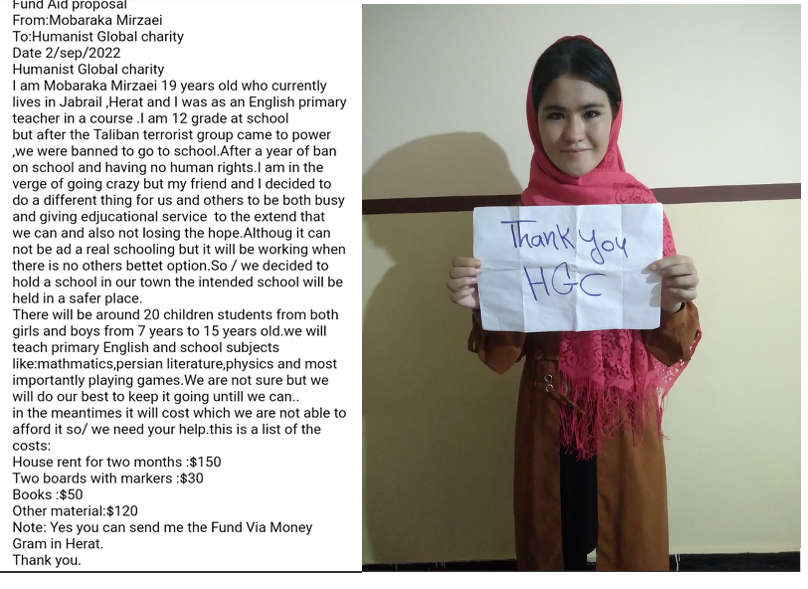 Fund Aid proposal
From:Mobaraka Mirzaei
To:Humanist Global charity
Date 2/sep/2022
Humanist Global charity
I am Mobaraka Mirzaei 19 years old who currently
lives in Jabrail ,Herat and I was as an English primary
teacher in a course .I am 12 grade at school
but after the Taliban terrorist group came to power
,we were banned to go to school.After a year of ban
on school and having no human rights.I am in the
verge of going crazy but my friend and I decided to
do a different thing for us and others to be both busy
and giving edjucational service  to the extend that
we can and also not losing the hope.Althoug it can
not be ad a real schooling but it will be working when
there is no others bettet option.So / we decided to
hold a school in our town the intended school will be
held in a safer place.
There will be around 20 children students from both
girls and boys from 7 years to 15 years old.we will
teach primary English and school subjects
like:mathmatics,persian literature,physics and most
importantly playing games.We are not sure but we
will do our best to keep it going untill we can..
in the meantimes it will cost which we are not able to
afford it so/ we need your help.this is a list of the
costs:
House rent for two months :$150
Two boards with markers :$30
Books :$50
Other material:$120
Note: Yes you can send me the Fund Via Money
Gram in Herat.
Thank you.
Thank you
HGC